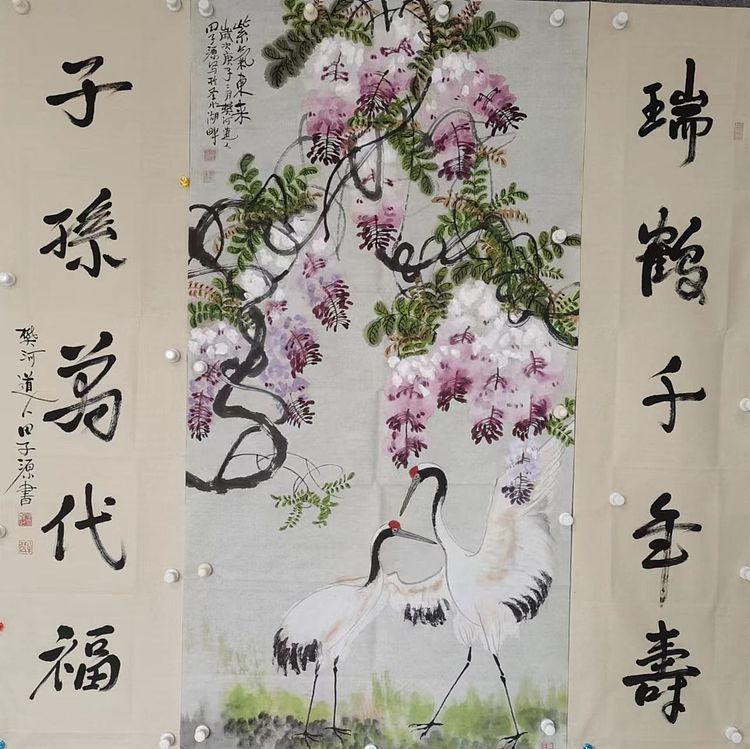 瑞鶴千年壽
紫氣東来
歲次庚子二月樊河道人
田子源写於圣水湖畔
子孫萬代福
樊河道人田子源書